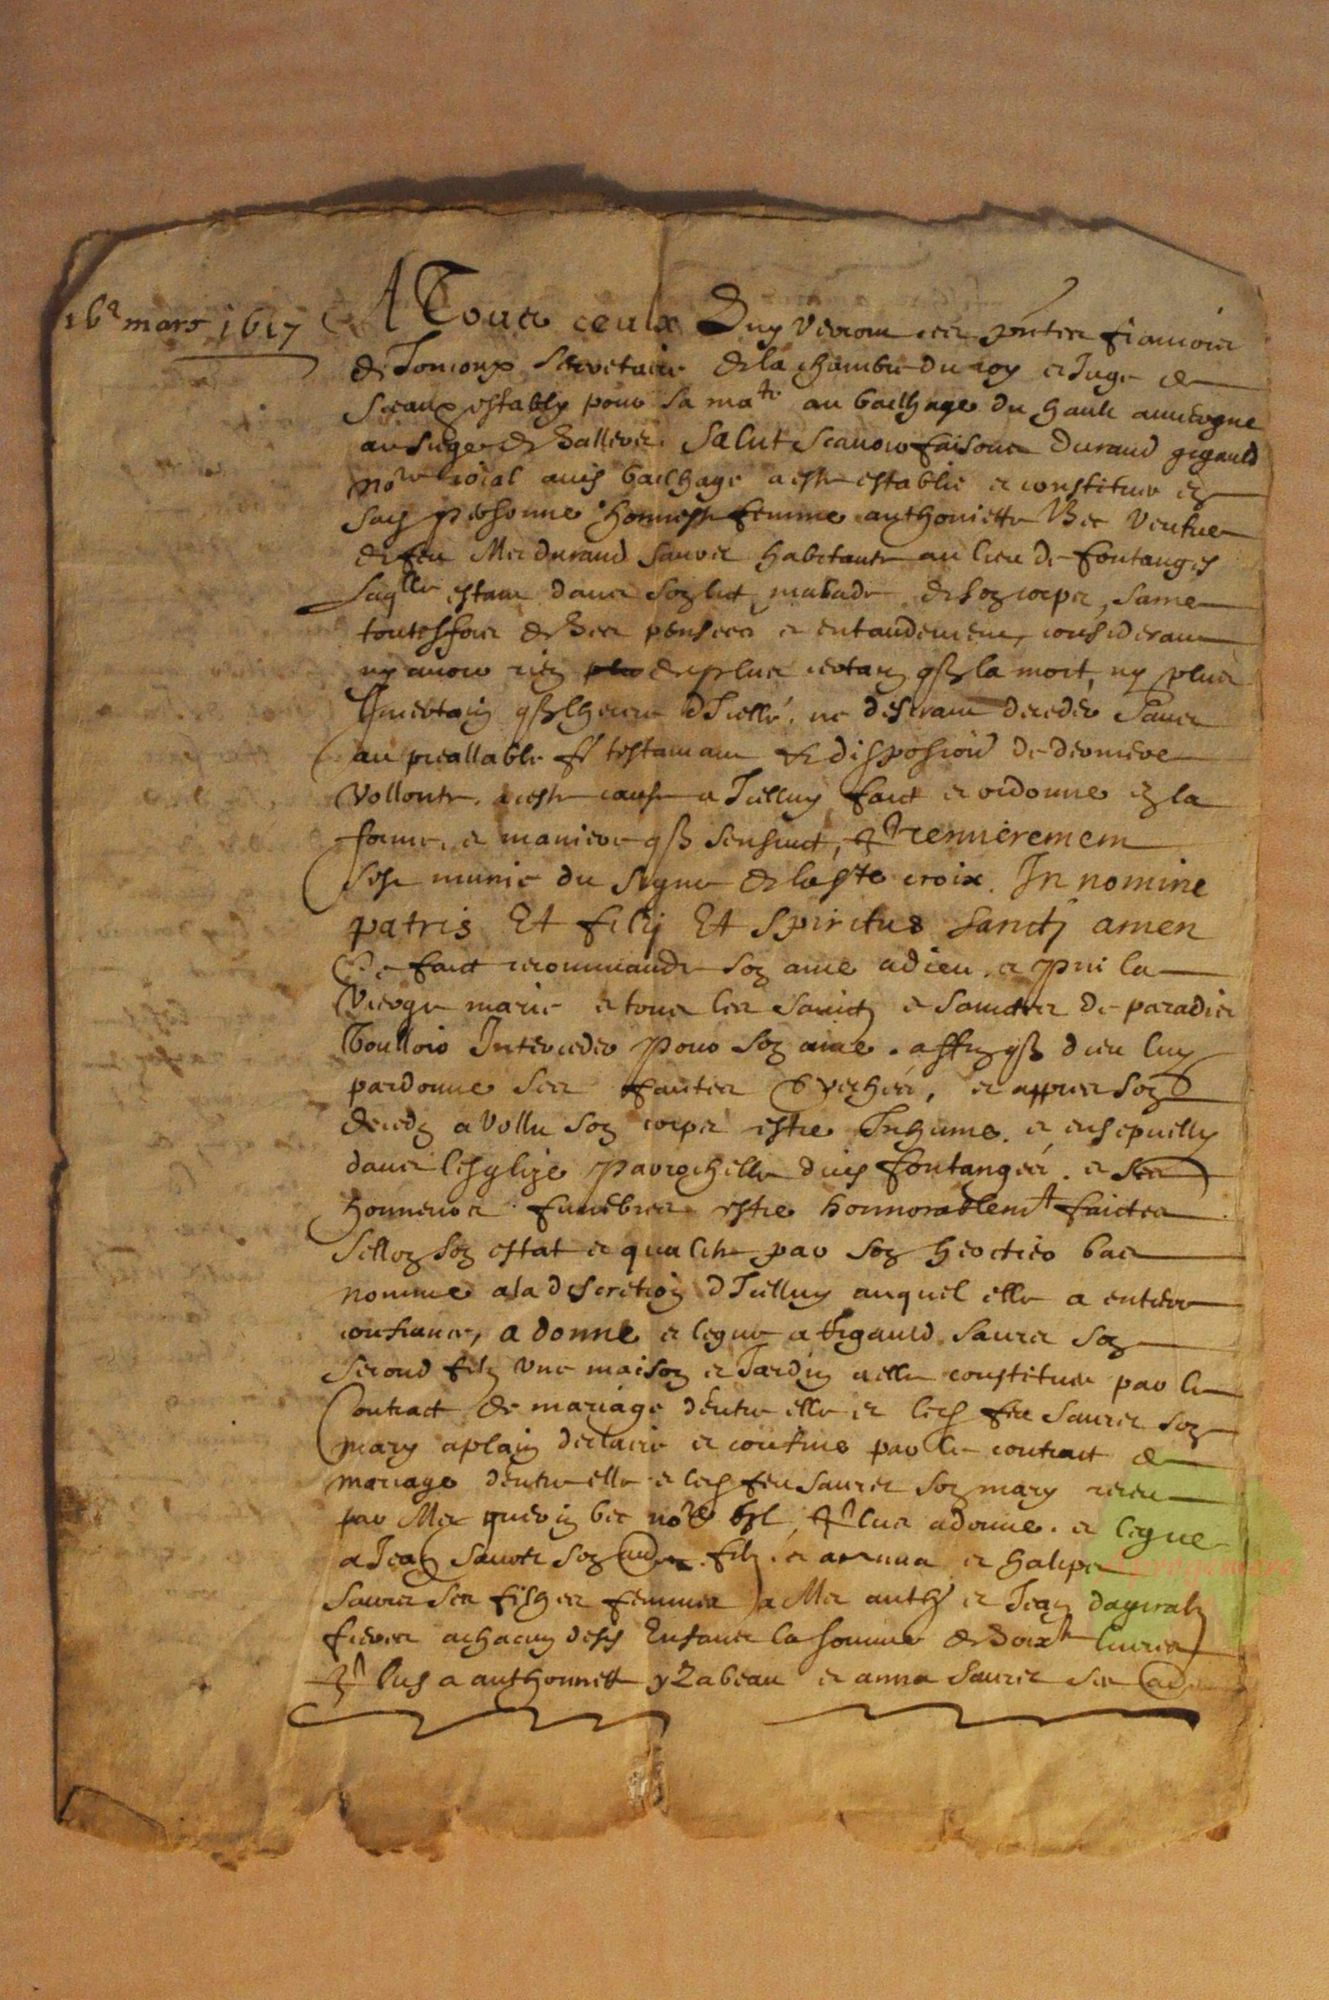 16e mars 1617
A Tous ceulx Quy verront ces pntes francois
de Tomoux Secretaire de la chambre du roy et Juge de
Sceaux estably pour sa mate au bailhage du hault auvergne
au siege de Sallers. Salut scavoir faisons Durand gigauld
nore roial audt bailhage a este establie et constitue en
sad personne honneste femme anthoniette Bec veufve
de feu Mes durand Saures habitante au lieu de fontanges
laqlle estant dans son lict malade de son corps, saine
toutesfois de ses pensees et entandement, considerant
ny avoir rien de plus certain qe la mort, ny plus
Incertain qe lheure dIcelle. ne desirant deceder sans
au preallable fe testamant et disposion de derniere
vollonte. a ceste cause a Icelluy faict et ordonne en la
forme et maniere qe sensuict, Et premierement
sest munie du signe de la ste croix. In nomine
patris Et filij Et spiritus sancti amen
Ce faict recommande son ame a dieu. et prie la
vierge marie et tous les sainctz et sainctes de paradis
Voulloir Interceder pour son ame. affin qe dieu luy
pardonne ses fautes et peches, et appres son
decedz a vollu son corps estre Inhume. et ensepvelly
dans lesglize parrochelle dud fontanges. et ses
honneurs funebres estre honnorablemt faictes
sellon son estat et qualite par son heretier bas
nomme a la discretion dIcelluy auquel elle a entiere
confiance, a donne et legue a Rigauld Saures son
second filz une maison et Jardin a elle constitues par le
Contract de mariage dentre elle et led feu Saures son
mary a plain declaire et confine par le contract de
mariage dentre elle et led feu Saures son mary receu
par Me guerin bec nore Et plus a donne. et legue
a Jean Saures son filz. et a anna et halips
Saures ses filhes femmes a Mes anth et Jean dayralz
freres a chacun desd Enfans la somme de livres
Et plus a authonnett yzabeau et anna Saures ses